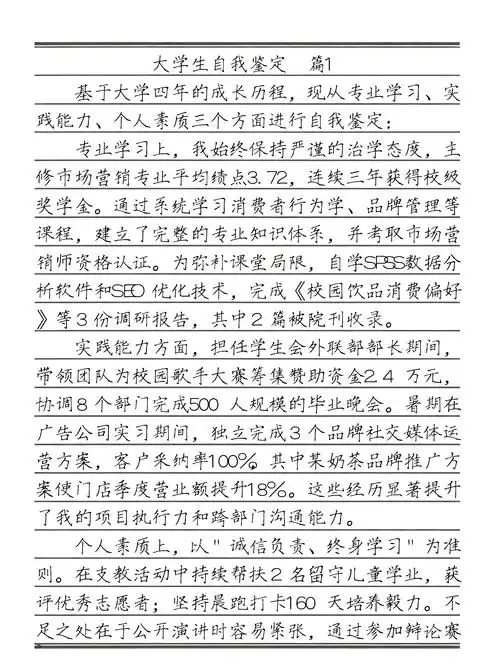 大学生自我鉴定 篇1
基于大学四年的成长历程，现从专业学习、实
践能力、个人素质三个方面进行自我鉴定：
专业学习上，我始终保持严谨的治学态度，主
修市场营销专业平均绩点3.72，连续三年获得校级
奖学金。通过系统学习消费者行为学、品牌管理等
课程，建立了完整的专业知识体系，并考取市场营
销师资格认证。为弥补课堂局限，自学SPSS数据分
析软件和SEO 优化技术，完成《校园饮品消费偏好
》等3 份调研报告，其中2 篇被院刊收录。
实践能力方面，担任学生会外联部部长期间，
带领团队为校园歌手大赛筹集赞助资金2.4 万元，
协调8 个部门完成500 人规模的毕业晚会。暑期在
广告公司实习期间，独立完成3 个品牌社交媒体运
营方案，客户采纳率100%，其中某奶茶品牌推广方
案使门店季度营业额提升18%。这些经历显著提升
了我的项目执行力和跨部门沟通能力。
个人素质上，以"诚信负责、终身学习"为准
则。在支教活动中持续帮扶2 名留守儿童学业，获
评优秀志愿者；坚持晨跑打卡160 天培养毅力。不
足之处在于公开演讲时容易紧张，通过参加辩论赛